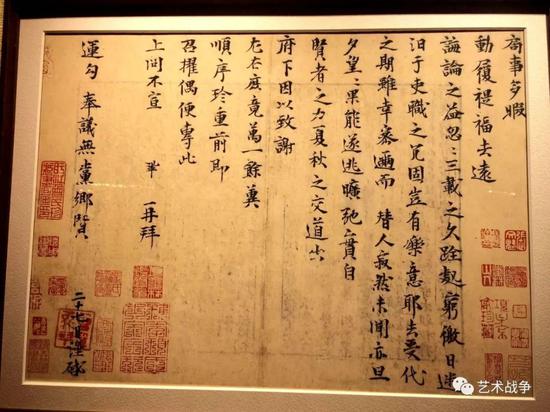 局事多暇
動履禔福去遠
誨論之益忽〻三載之久跧處窮徼日迷
汩于吏職之冗固豈有樂意耶去受代
之期雖幸密邇而替人寂然未聞亦旦
夕望〻果能遂逃曠弛實自
賢者之力夏秋之交道出
府下因以致謝
左右庶竟萬一餘冀
順序珍重前即
召擢偶便專此
上問不宣 鞏 再拜
運勾奉議無黨鄉賢
二十七日謹啓
艺术战争